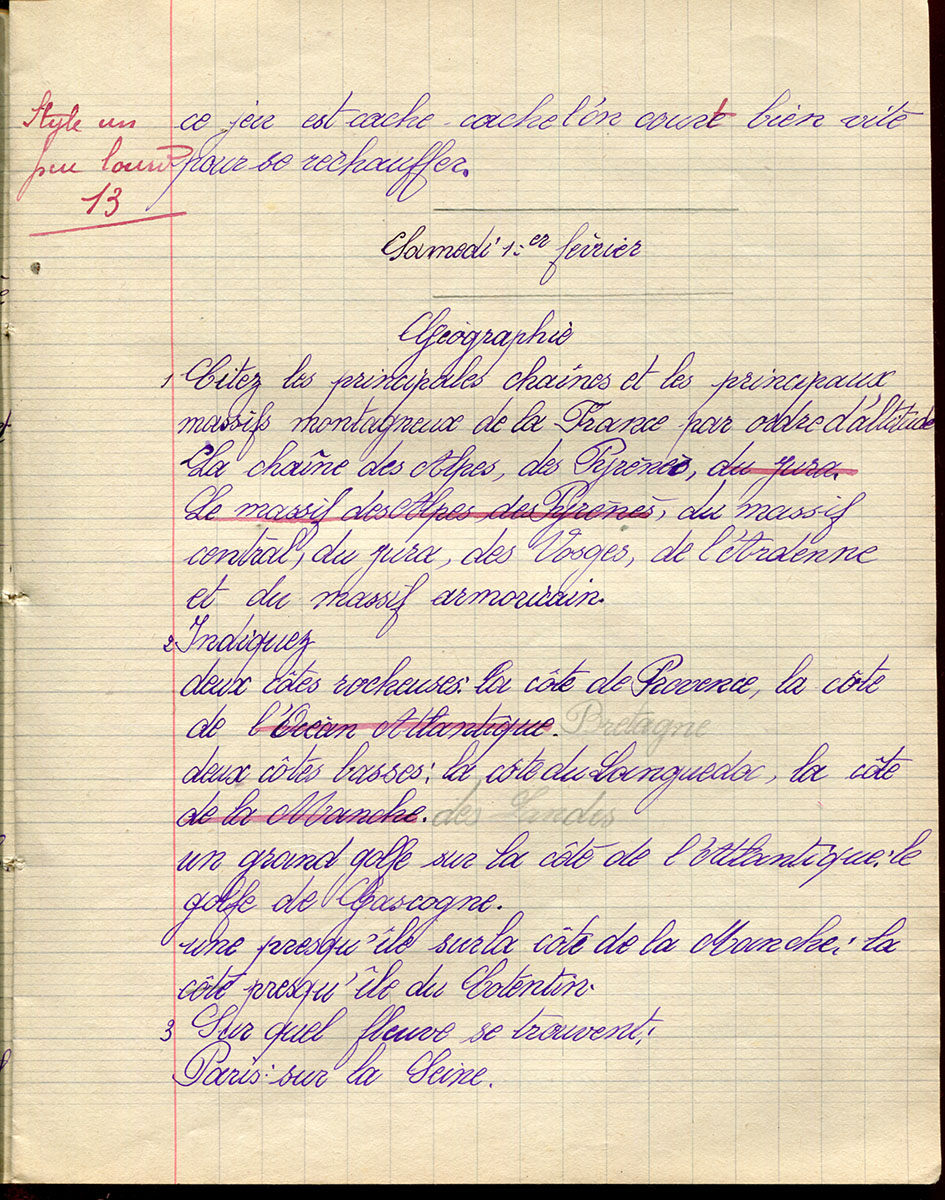 Style un
peu lourd
13
ce jeu est cache-cache l'on court bien vite
pour se réchauffer.
Samedi 1er février
Géographie
1 Citez les principales chaînes et les principaux
massifs montagneux de la France par ordre d'altitude
La chaîne des Alpes, des Pyrénés, du jura.
Le massif des Alpes des Pyrénés, du massif
central, du jura, des Vosges, de l'Ardenne
et du massif armoricain.
2 Indiquez
deux côtes rocheuses: la côte de Provence, la côte
de l'Océan Atlantique. Bretagne
deux côtes basses: la côte du Languedoc, la côte
de la Manche. des Landes
un grand golfe sur la côte de l'Atlantique: le
golfe de Gascogne.
une presqu'île sur la côte de la Manche: la
côte presqu'île du Cotentin.
3 Sur quel fleuve se trouvent:
Paris: sur la Seine.